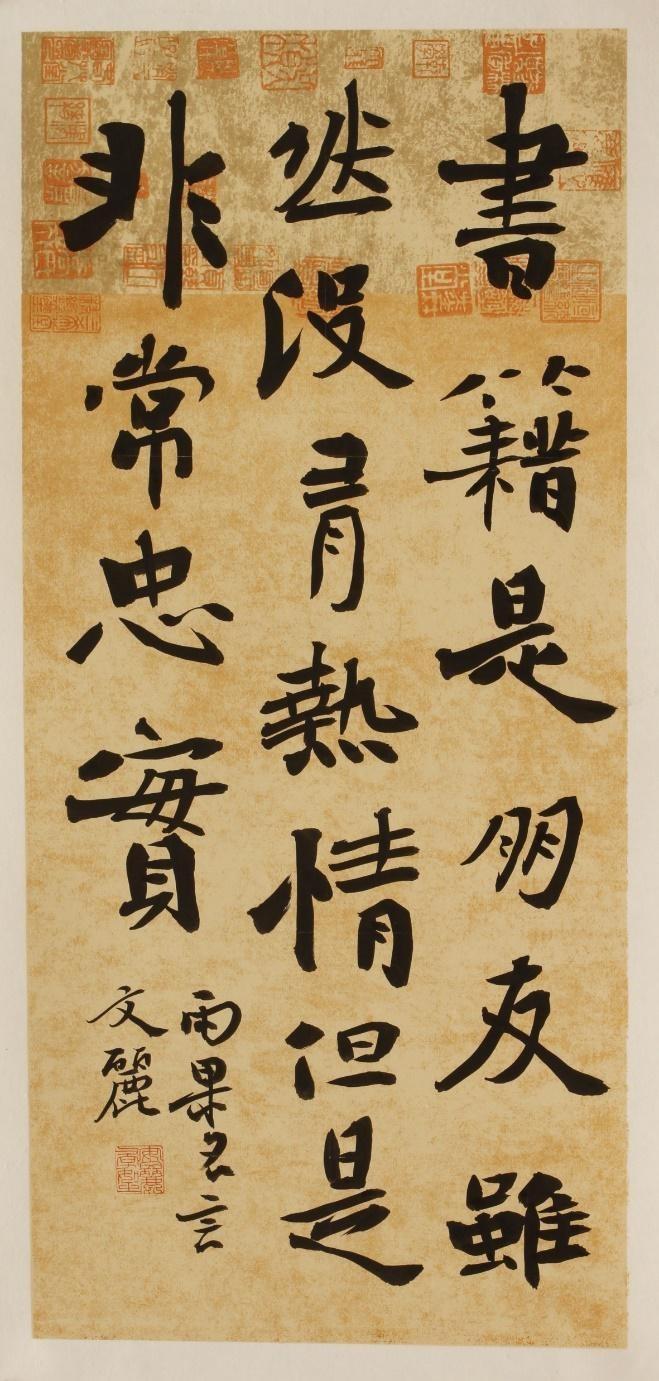 書籍是朋友雖
然没有熱情但是
非常忠實
雨果名言
文麗